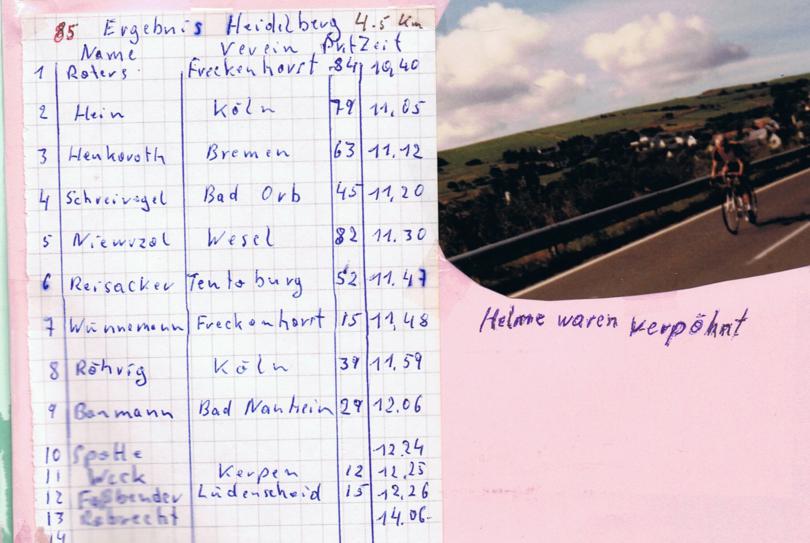 85 Ergebnis Heidelberg 4.5 km
Name Verein Zeit
1 Roters Freckenhorst 84 10,40
2 Hein Köln 79 11.05
3 Henkoroth Bremen 63 11.12
4 Schreivogel Bad Orb 45 11.20
5 Niewvzol Wesel 82 11.30
6 Reisacker Teutoburg 52 11.47
7 Wünnemann Freckenhorst 15 11,48
8 Röhrig Köln 39 11.59
9 Bonmann Bad Nauheim 29 12.06
10 Spotte 12.24
11 Weck Kerpen 12 12,25
12 Faßbender Lüdenscheid 15 12,26
13 Robrecht 14.06
14
Helme waren verpöhnt